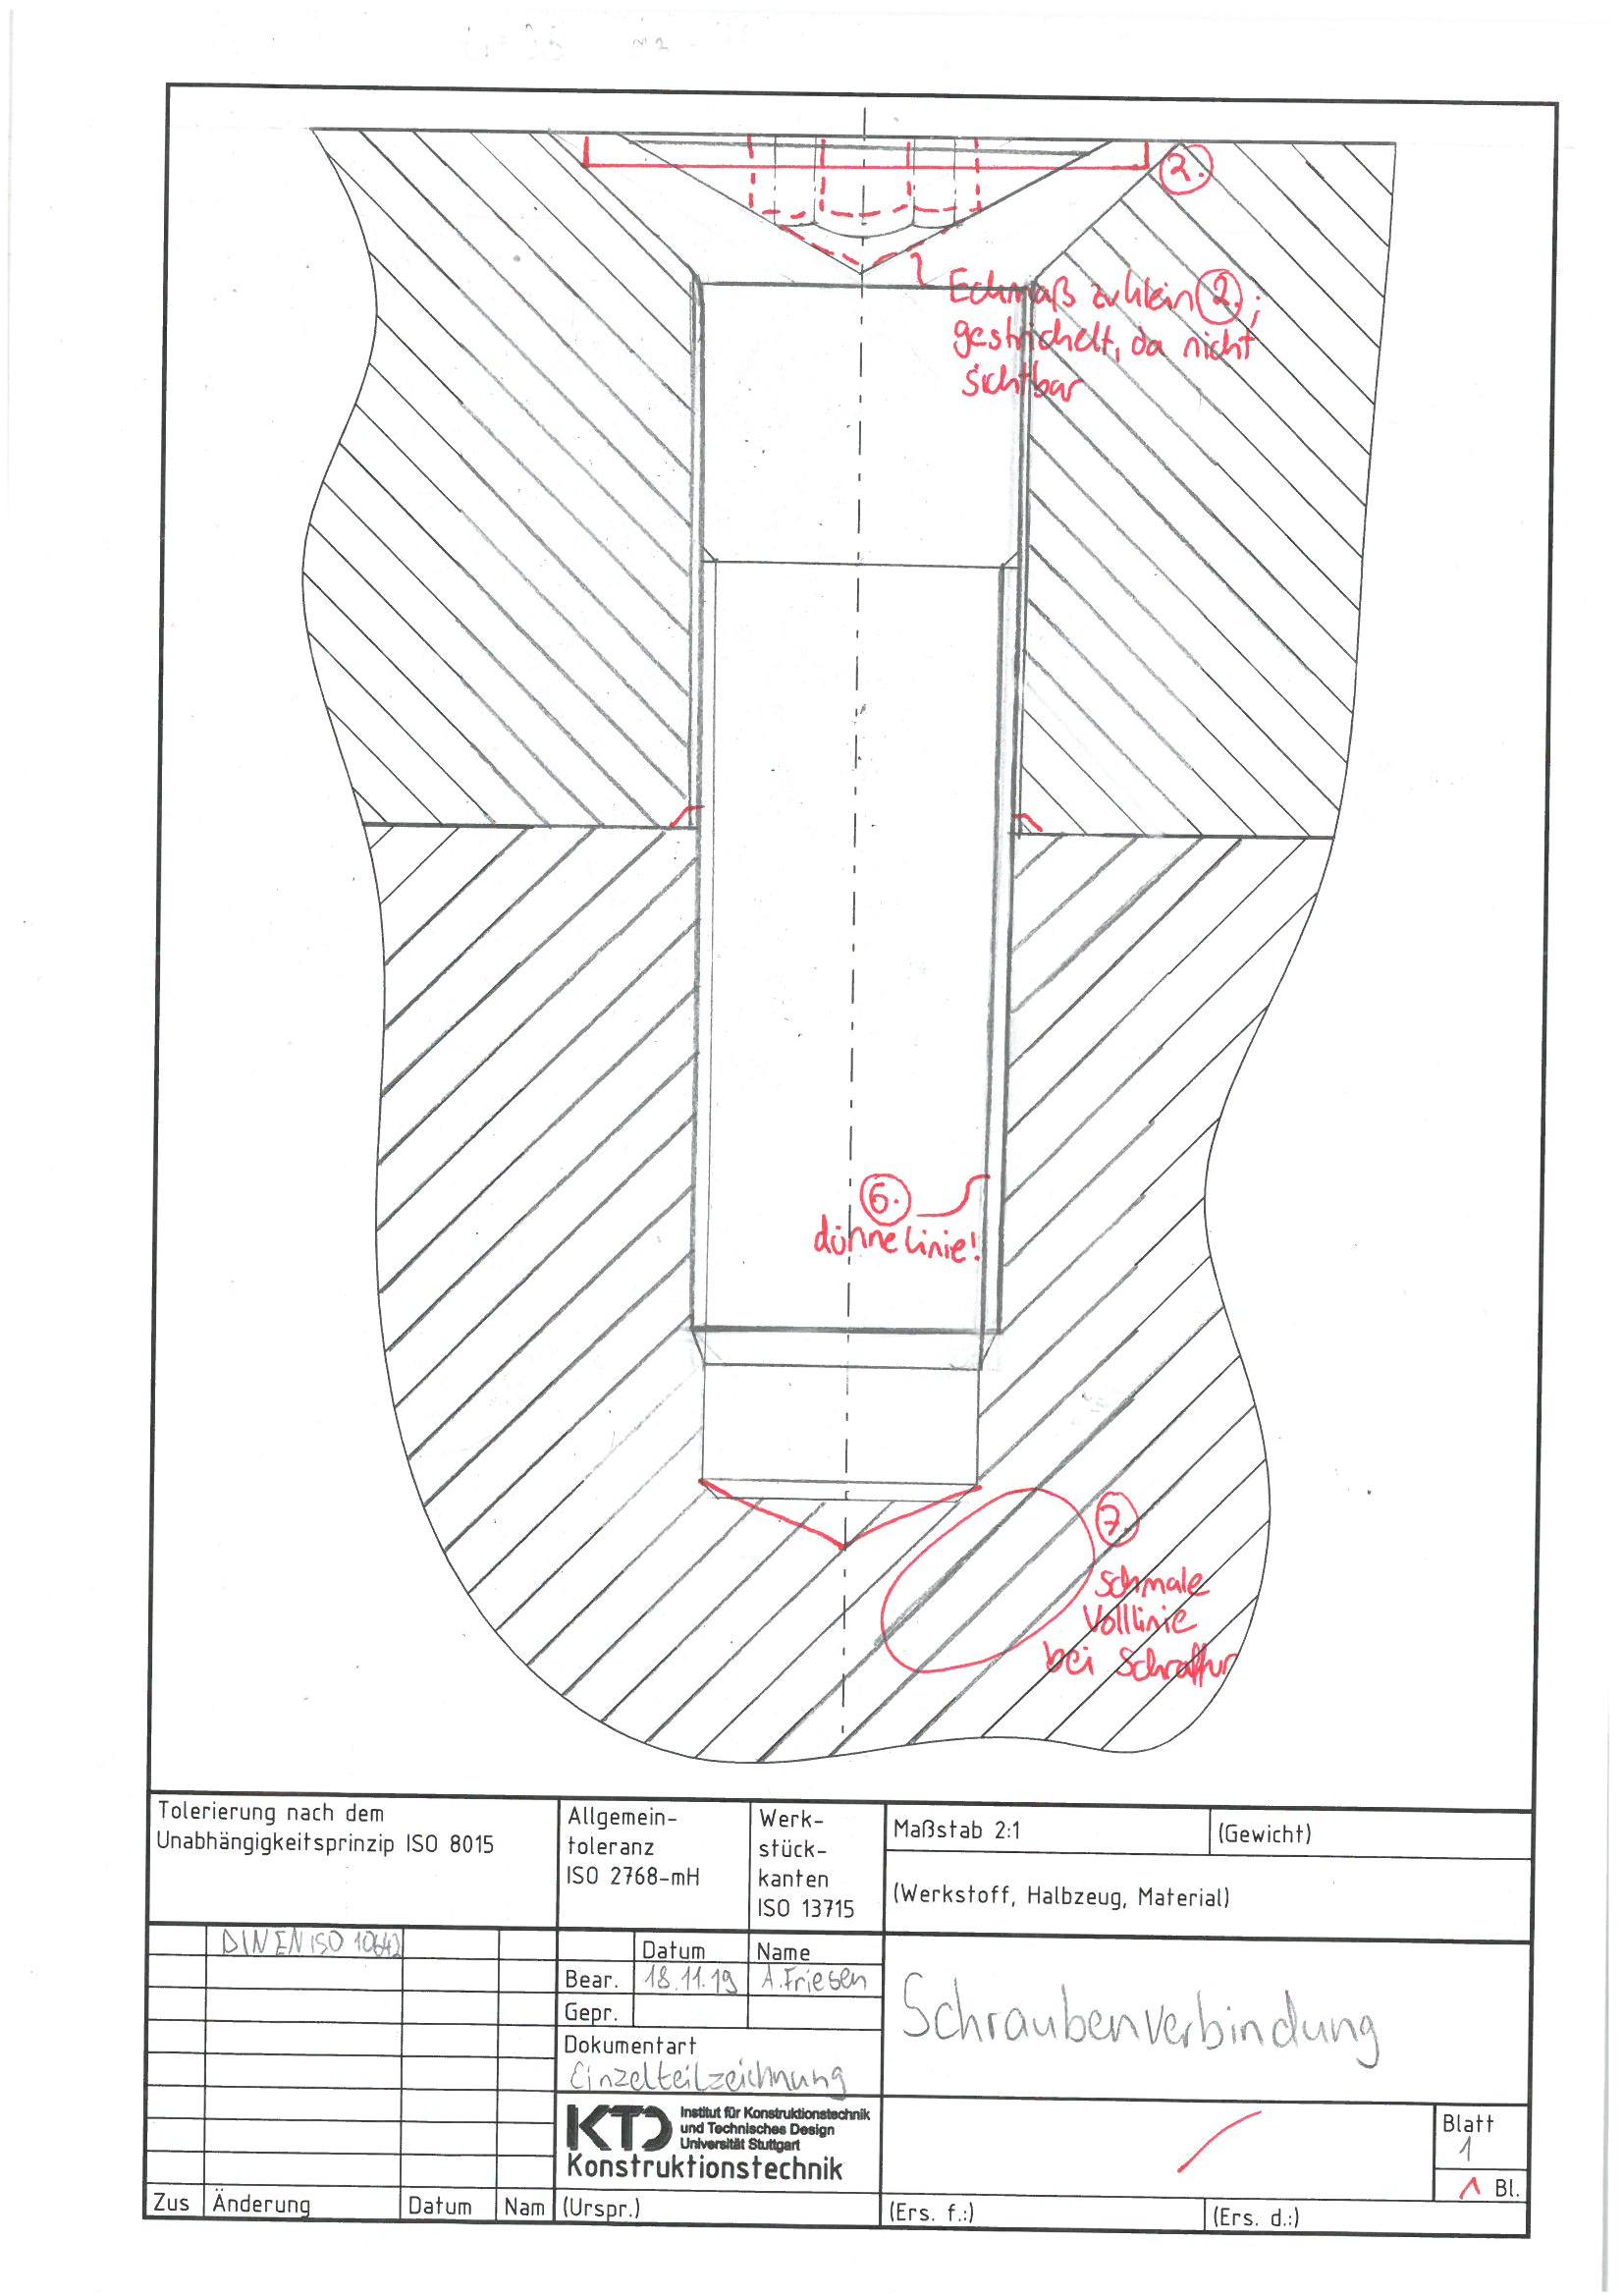 2.
Eckmaß zu klein 2. ;
gestrichelt, da nicht
sichtbar
6.
dünne Linie!
7.
schmale
Volllinie
bei Schraffur
Tolerierung nach dem
Unabhängigkeitsprinzip ISO 8015
Allgemein-
toleranz
ISO 2768-mH
Werk-
stück-
kanten
ISO 13715
Maßstab 2:1
(Gewicht)
(Werkstoff, Halbzeug, Material)
DIN EN ISO 10642
Datum
Name
Bear.
18.11.19
A.Friesen
Gepr.
Dokumentart
Einzelteilzeichnung
Schraubenverbindung
KTD
Institut für Konstruktionstechnik
und Technisches Design
Universität Stuttgart
Konstruktionstechnik
Blatt
1
1 Bl.
Zus
Änderung
Datum
Nam
(Urspr.)
(Ers. f.:)
(Ers. d.:)